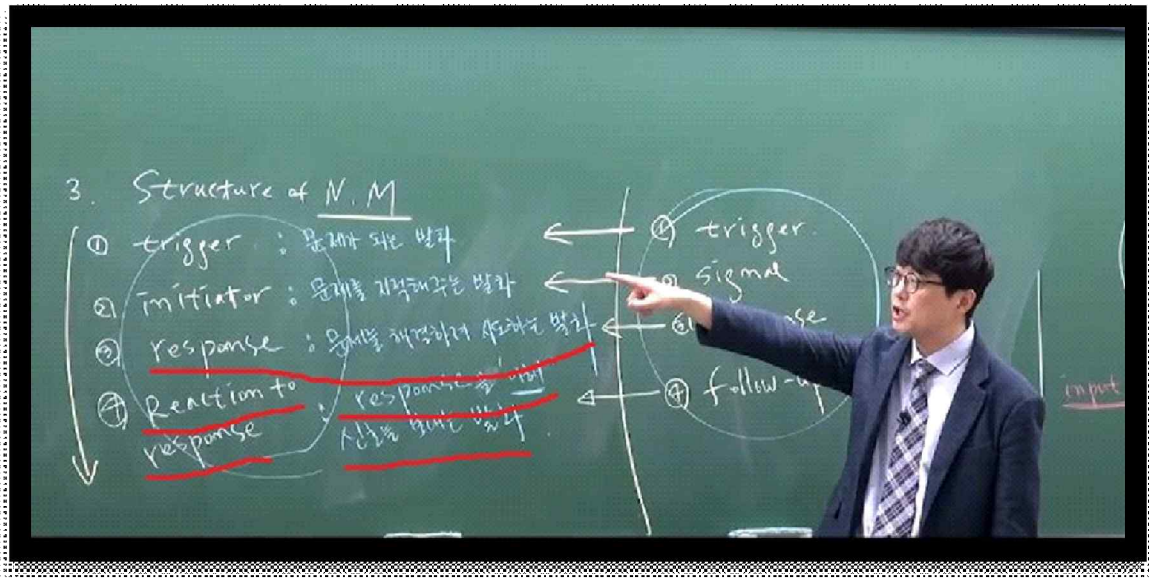 3. Structure of N.M
① trigger : 문제가 되는 발화
② initiator : 문제를 지적해주는 발화
③ response : 문제를 해결하려 시도하는 발화
④ Reaction to response : response를
신호를 보내는 발화
① trigger.
signal
④ follow-up
input